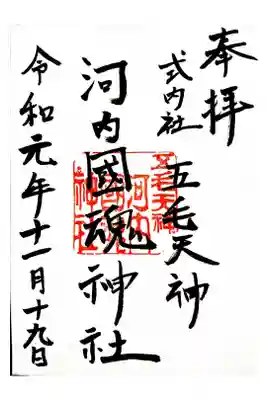 奉拝
式内社
五毛天神
河内國魂神社
令和元年十一月十九日